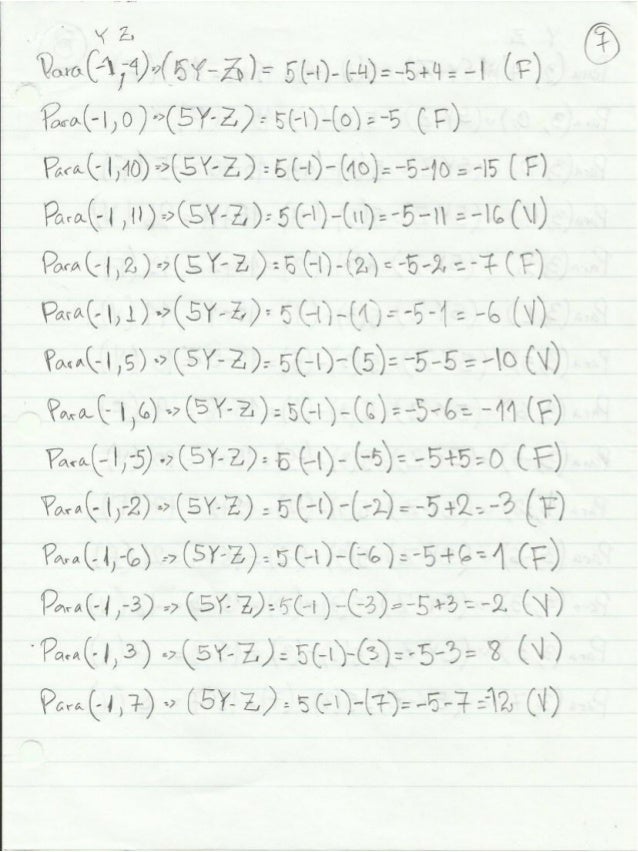 Y Z
7
Para (-1,-4) => (5Y-Z) = 5(-1)-(-4)=-5+4=-1 (F)
Para (-1,0) => (5Y-Z) = 5(-1)-(0)=-5 (F)
Para (-1,10) => (5Y-Z) = 5(-1)-(10)=-5-10=-15 (F)
Para (-1,11) => (5Y-Z) = 5(-1)-(11)=-5-11=-16 (V)
Para (-1,2) => (5Y-Z) = 5(-1)-(2)=-5-2=-7 (F)
Para (-1,1) => (5Y-Z) = 5(-1)-(1)=-5-1=-6 (V)
Para (-1,5) => (5Y-Z) = 5(-1)-(5)=-5-5=-10 (V)
Para (-1,6) => (5Y-Z) = 5(-1)-(6)=-5-6=-11 (F)
Para (-1,-5) => (5Y-Z) = 5(-1)-(-5)=-5+5=0 (F)
Para (-1,-2) => (5Y-Z) = 5(-1)-(-2)=-5+2=-3 (F)
Para (-1,-6) => (5Y-Z) = 5(-1)-(-6)=-5+6=1 (F)
Para (-1,-3) => (5Y-Z) = 5(-1)-(-3)=-5+3=-2 (V)
Para (-1,3) => (5Y-Z) = 5(-1)-(3)=-5-3=8 (V)
Para (-1,7) => (5Y-Z) = 5(-1)-(7)=-5-7=-12 (V)